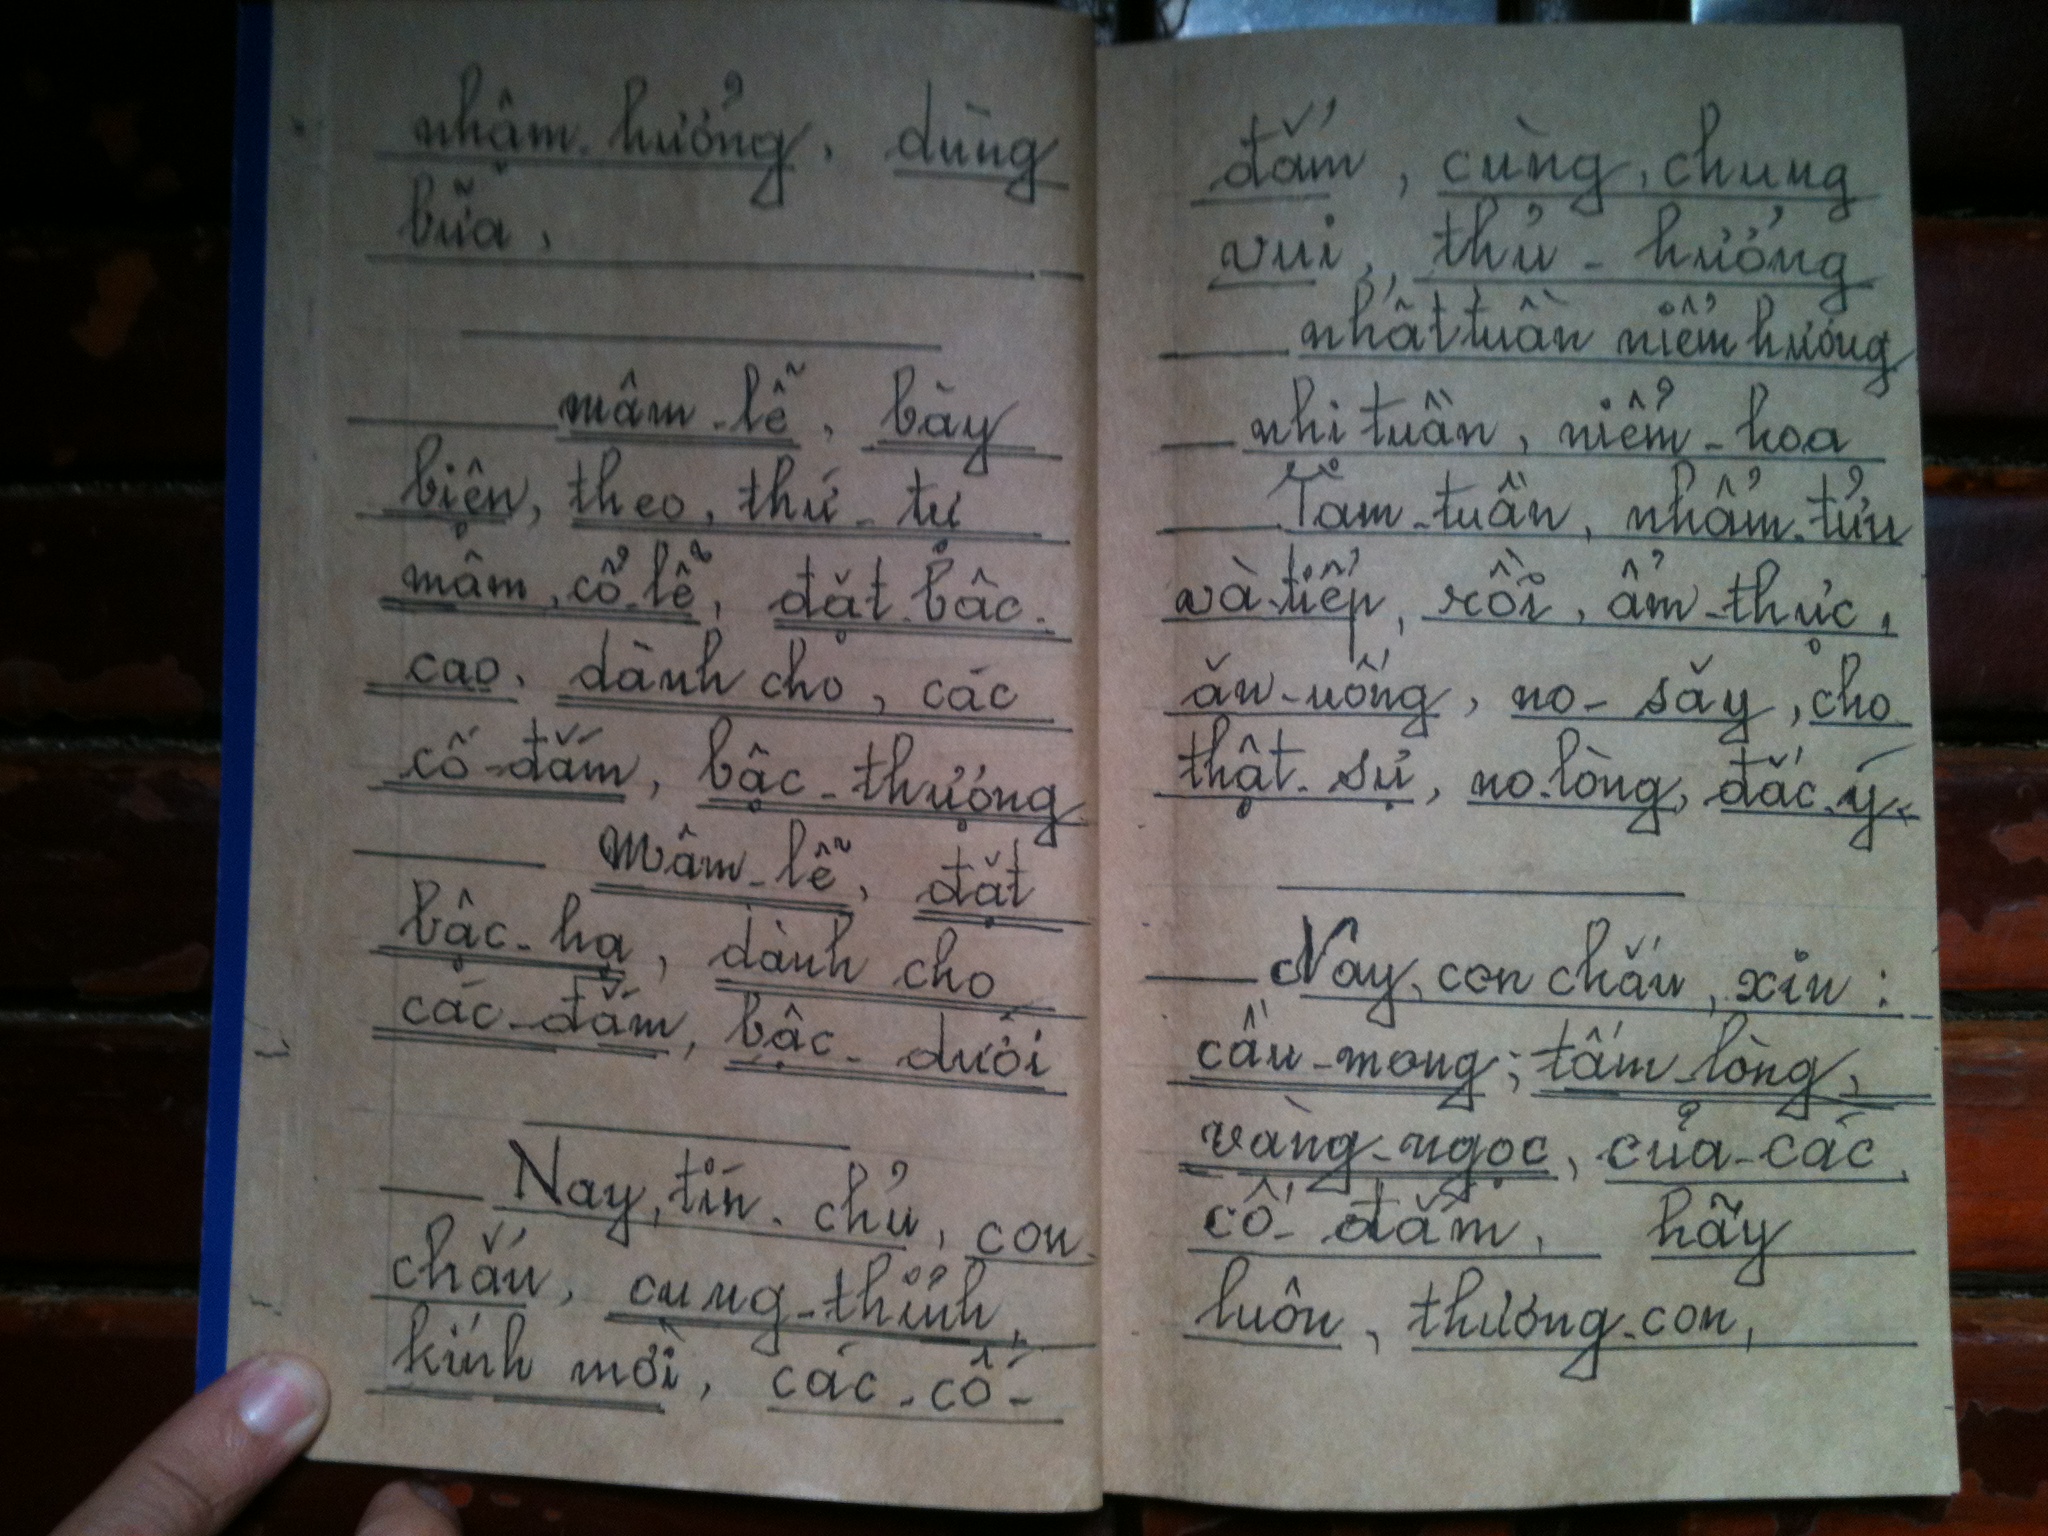 nhâm-hưởng, dùng
bữa,
mâm-lễ, bày
biện, theo, thứ-tự
mâm, cỗ-lễ, đặt bậc-
cao, dành cho, các
cố-đắm, bậc-thượng
mâm-lễ, đặt
bậc-hạ, dành cho
các-đắm, bậc-dưới
Nay, tín-chủ, con
cháu, cung-thỉnh,
kính mời, các-cố-
đắm, cùng, chung
vui, thủ-hưởng
nhất tuần niểm hương
nhi tuần, niểm-hoa
Tam-tuần, nhẩm-tửu
và tiếp, rồi, ẩm-thực,
ăn-uống, no-sảy, cho
thật-sự, no-lòng, đắc-ý
Nay, con cháu, xin:
cầu-mong; tấm-lòng,
vàng-ngọc, của-các
cố-đắm, hãy
luôn, thương-con,